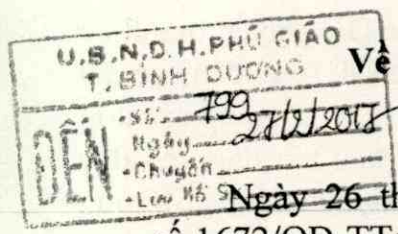 U.B.N.D.H.PHÚ GIÁO
T. BÌNH DƯƠNG
Về
ĐẾN
Số: 799
Ngày 27/2/2017
Chuyển
Lưu hồ S
Ngày 26 th
ố 1672/QĐ-TT